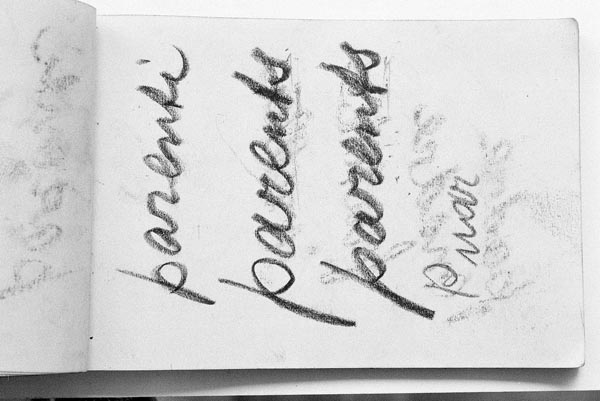 parenti
parents
parents